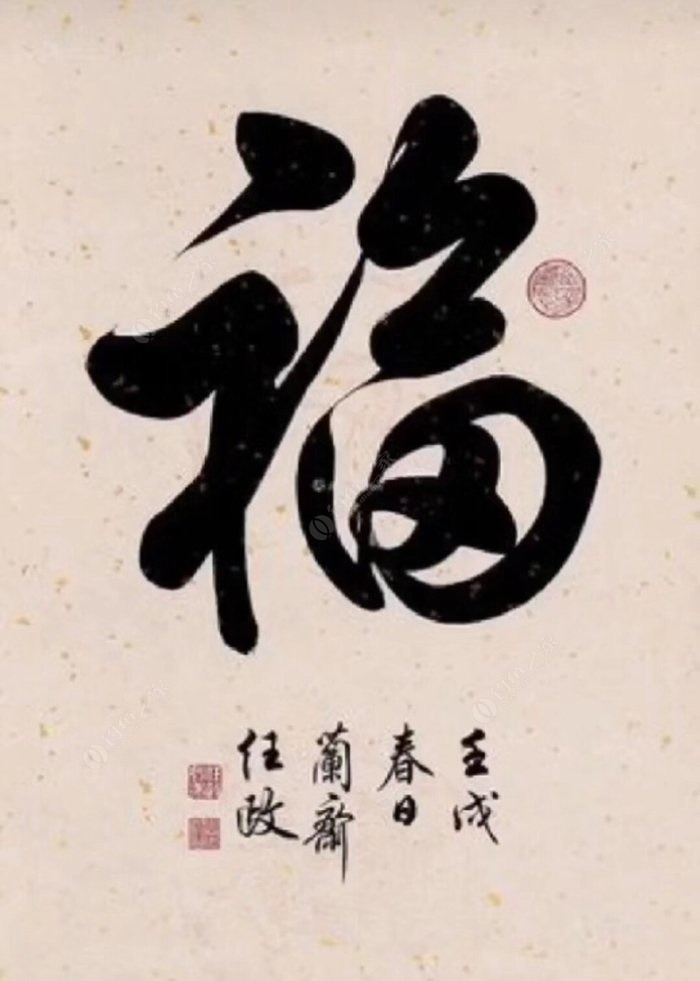 福
壬戌
春日
蘭齋
任政